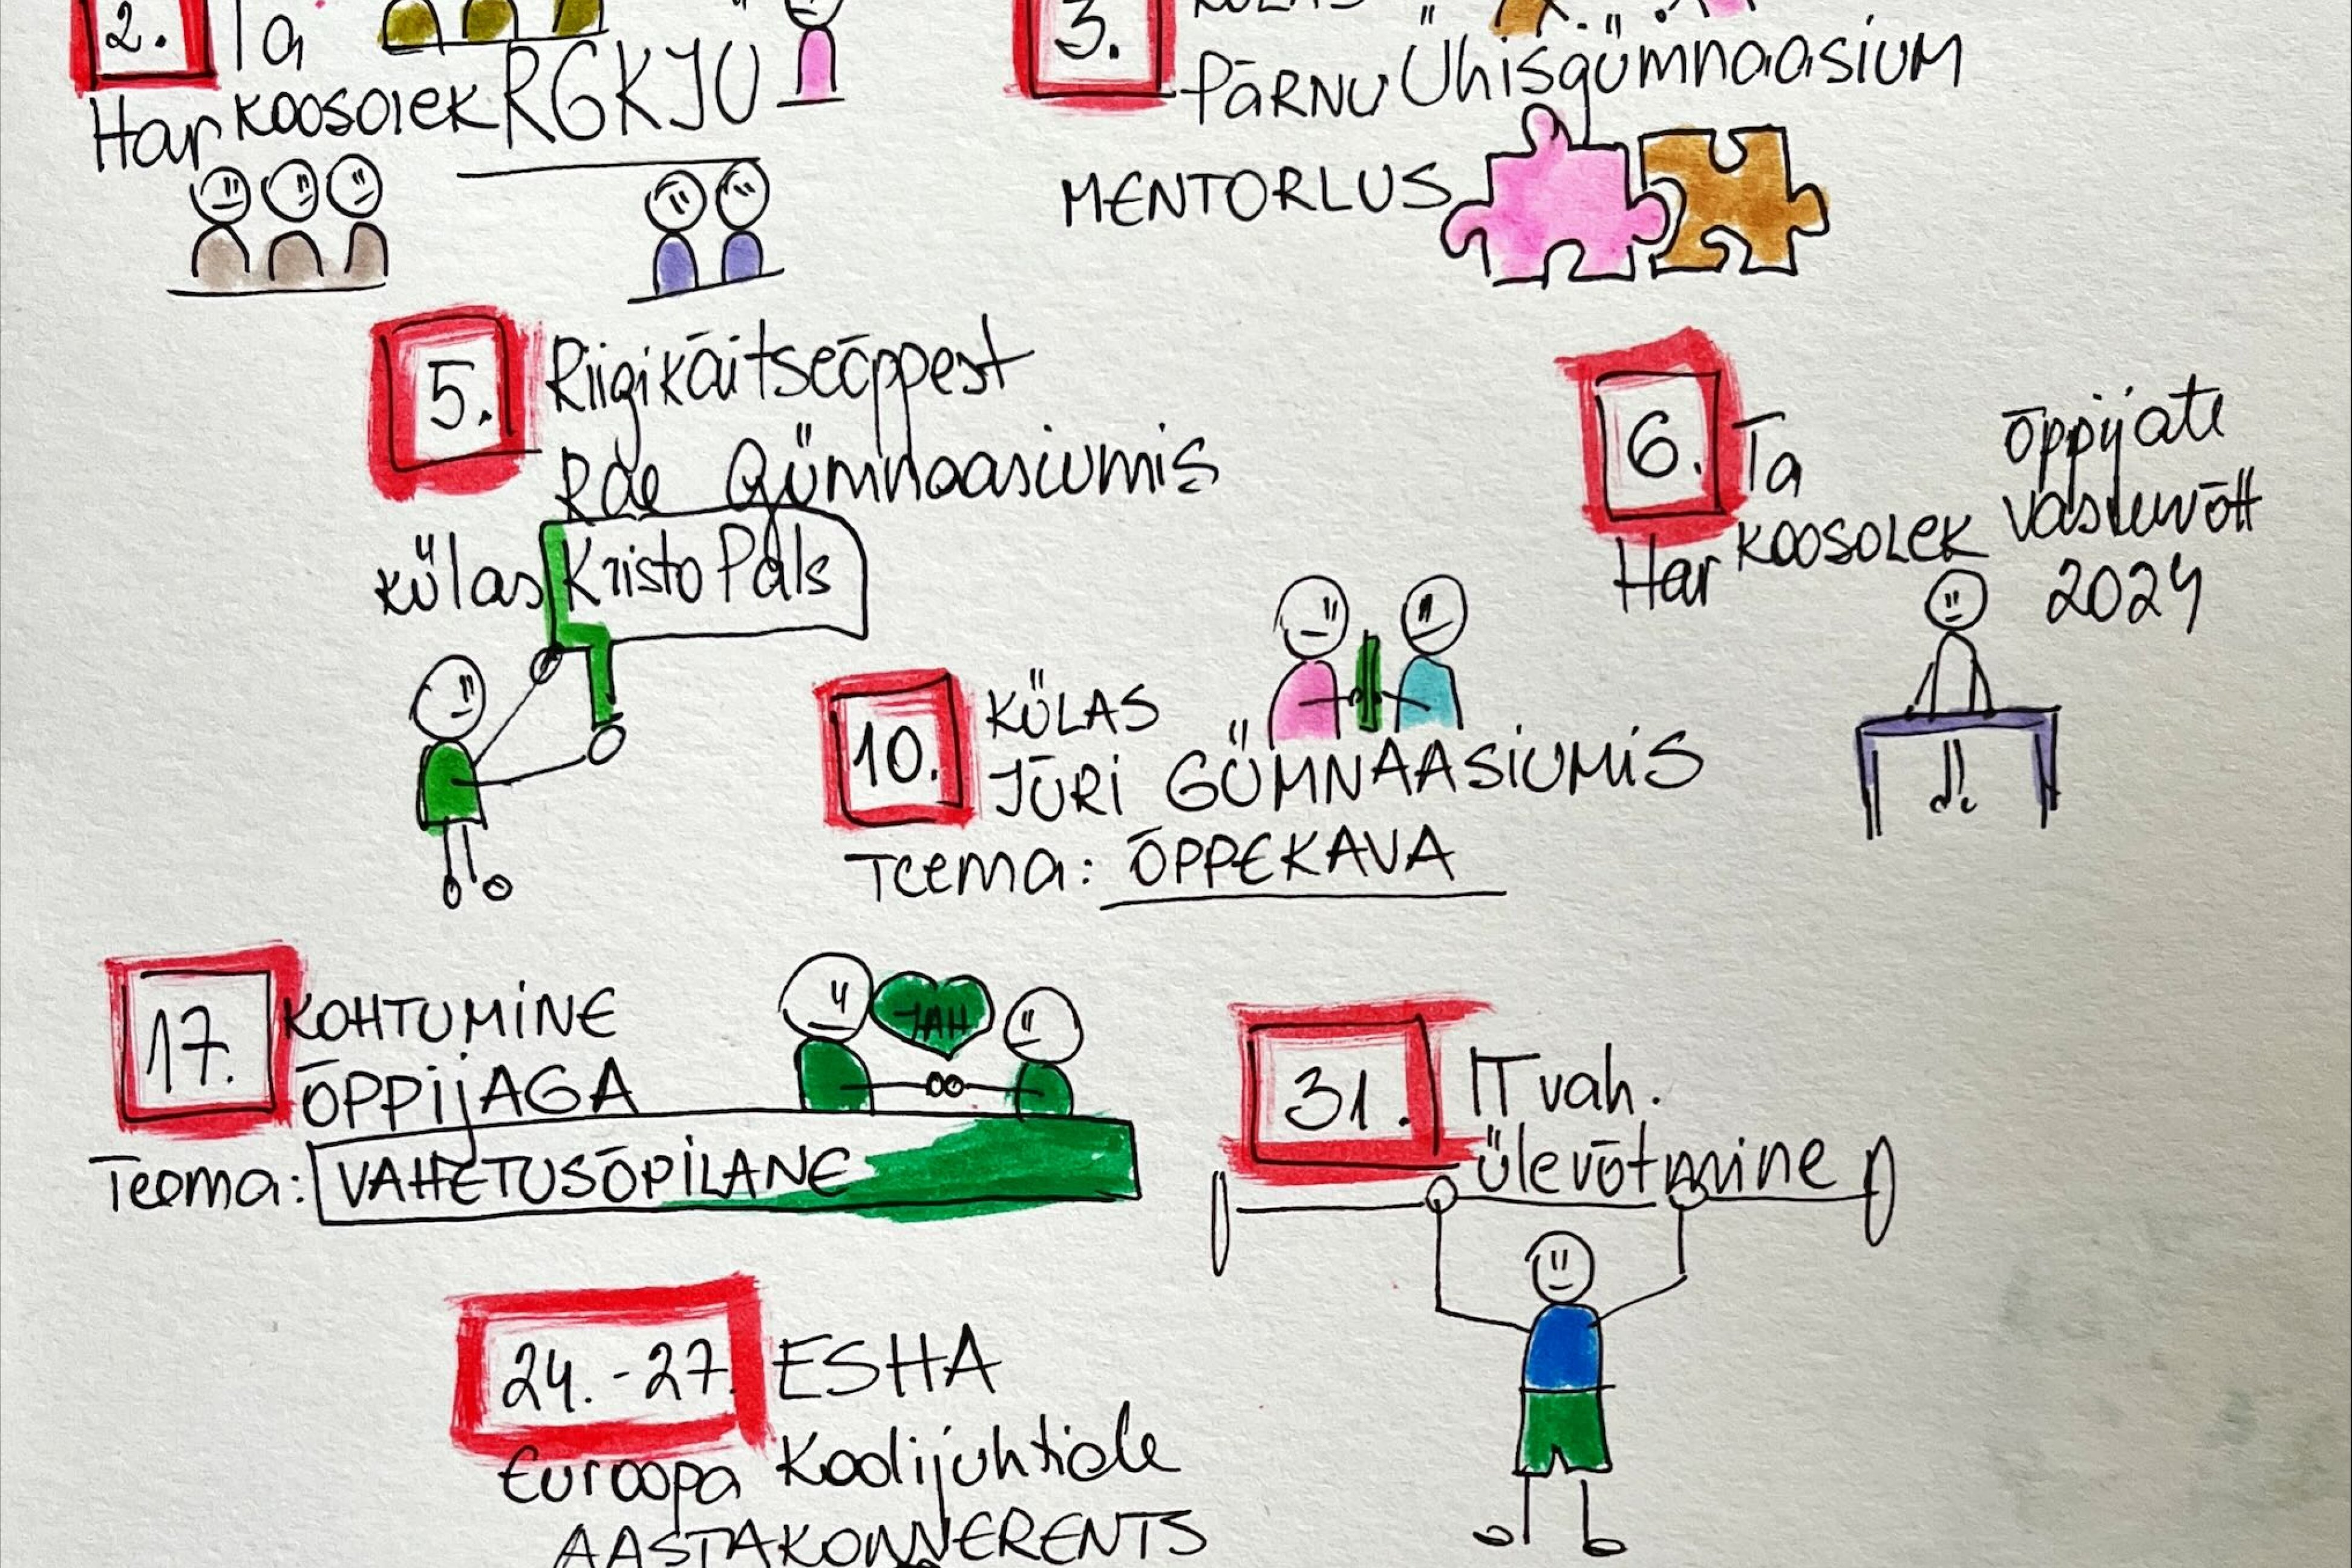 2. Ta
Har koosolek RGKJU
3. KÜLAS
PÄRNU Ühisgümnaasium
MENTORLUS
5. Riigikaitseõppest
Rae Gümnaasiumis
külas Kristo Pals
6. Ta
Har koosolek
õppijate
vastuvõtt
2024
10. KÜLAS
JÜRI GÜMNAASIUMIS
Teema: ÕPPEKAVA
17. KOHTUMINE
ÕPPIJAGA
JAH
Teema: VAHETUSÕPILANE
31. IT vah.
ülevõtmine
24.-27. ESHA
Euroopa Koolijuhtide
AASTAKONVERENTS